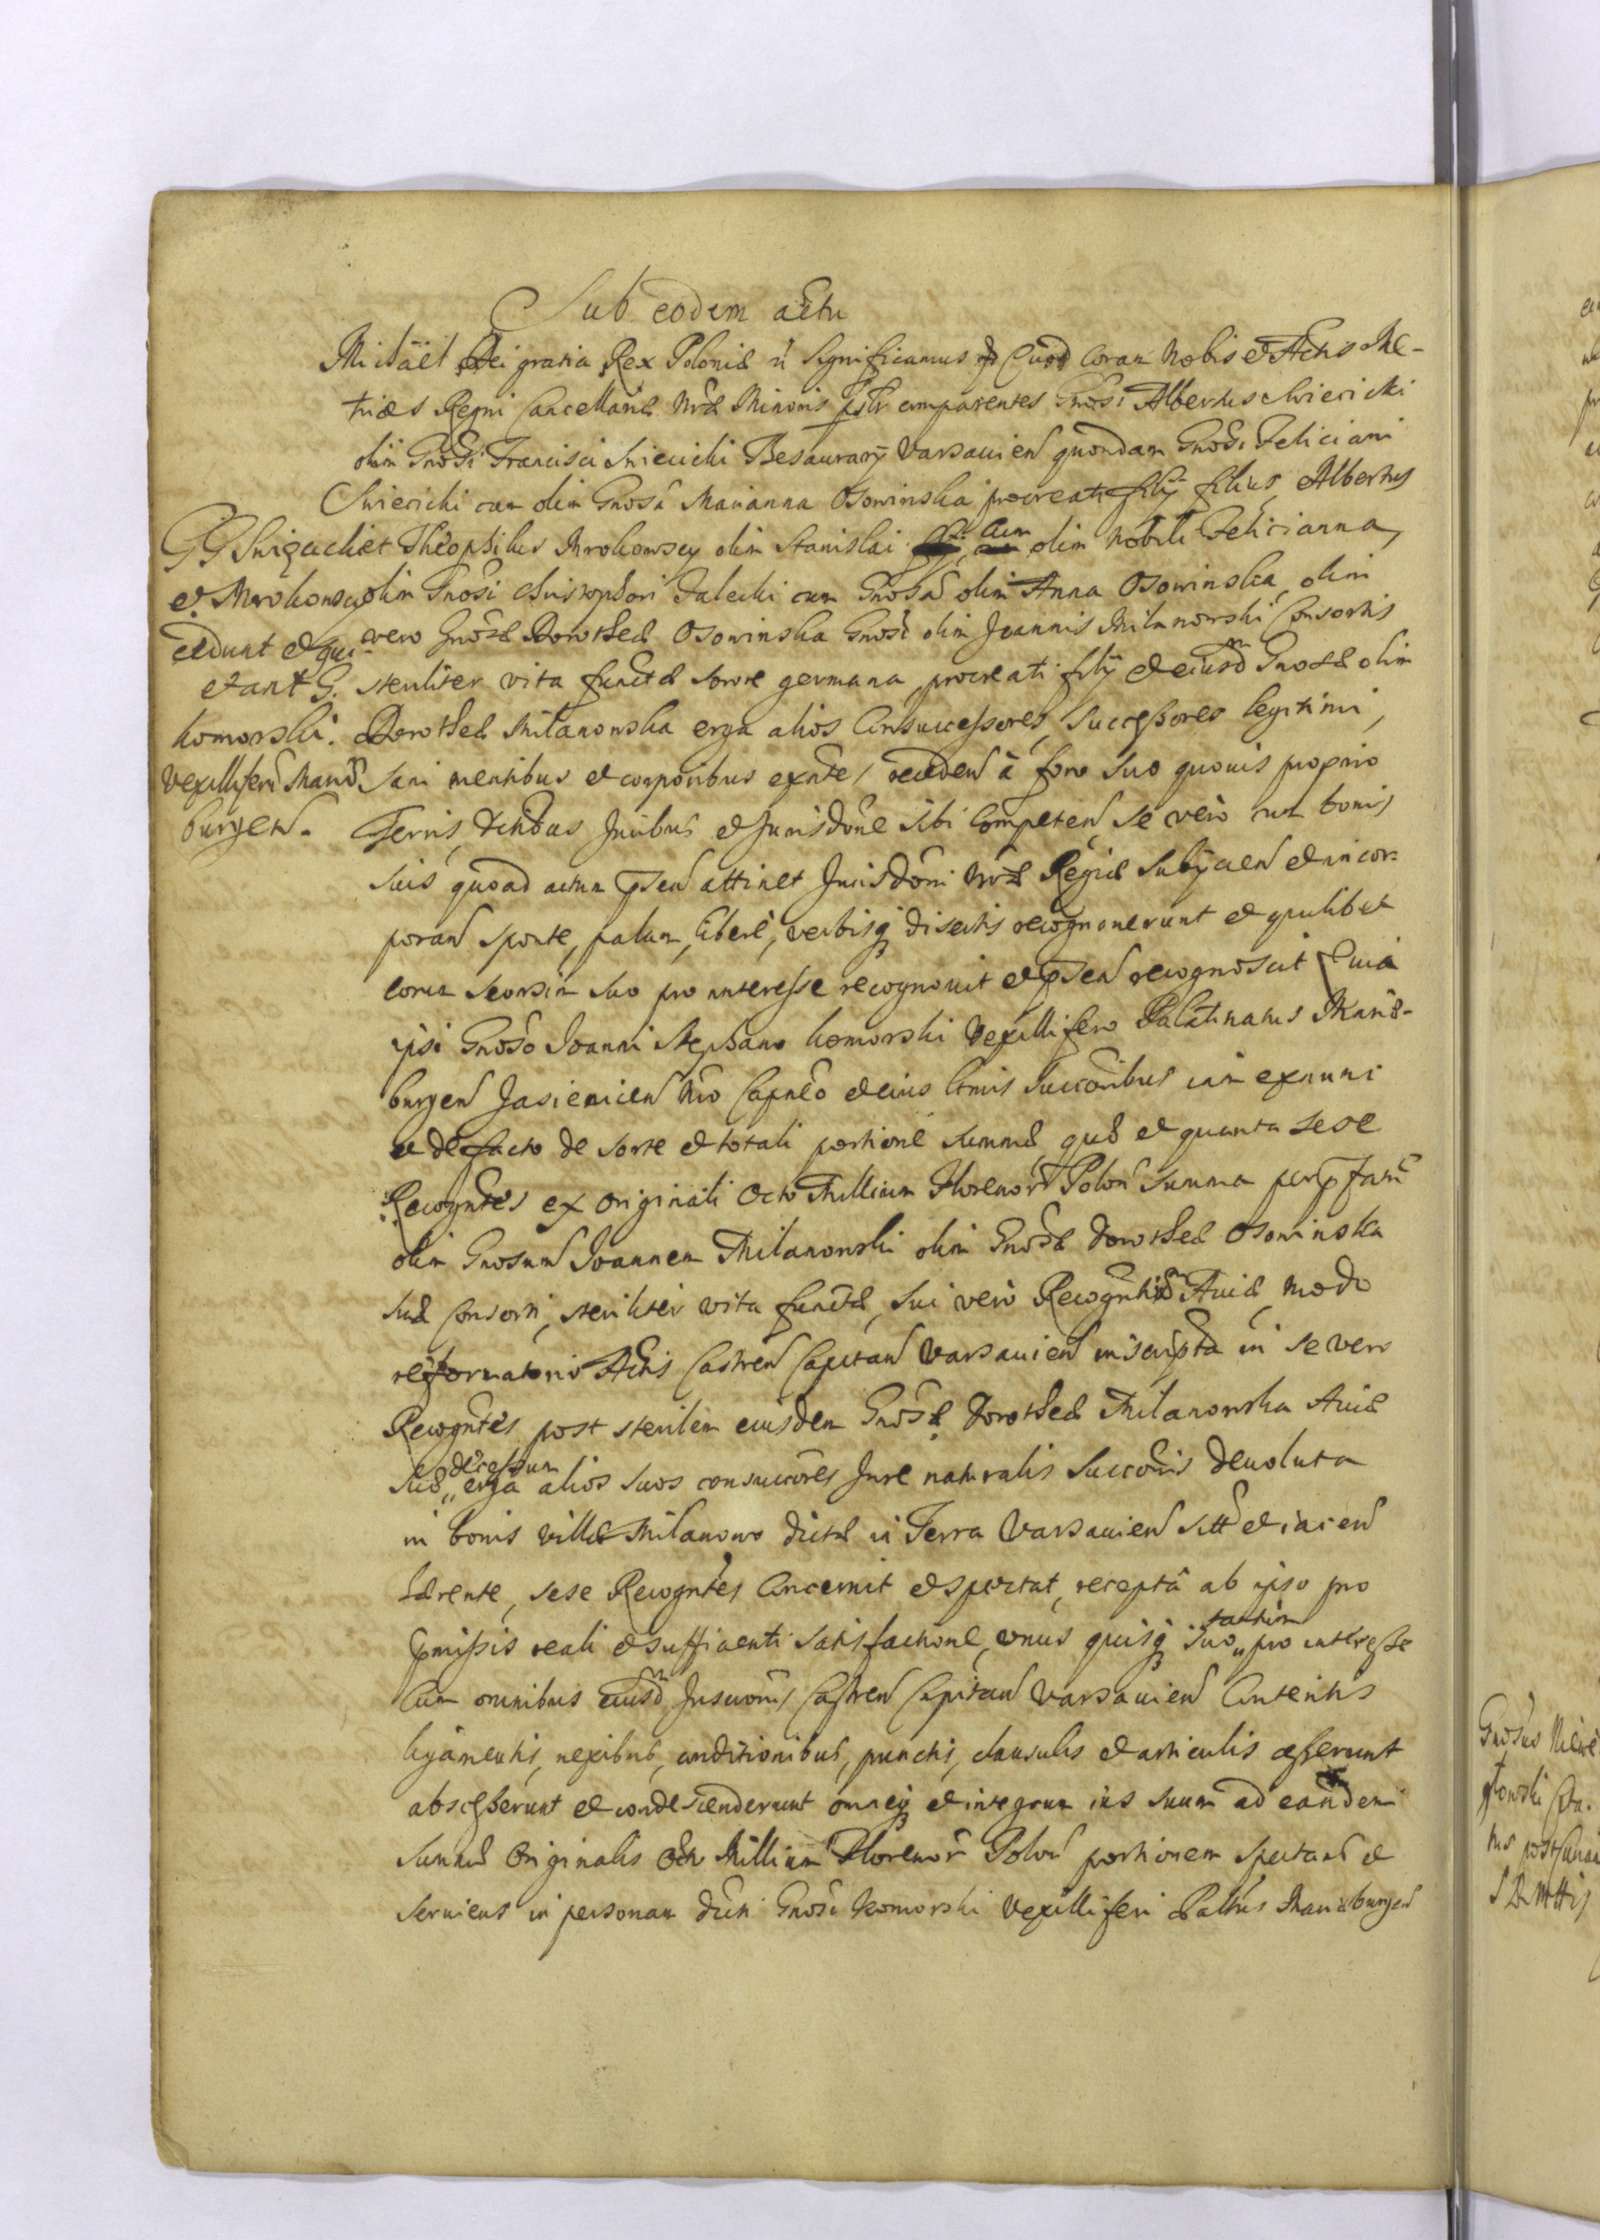 Sub eodem actu
Michäel Dei gratia Rex Poloniæ &c Significamus Quod Coram Nobis et Actis Me-
trices Regni Cancellariæ Nræ Minoris psltr comparentes Gnosi Albertus Swiecicki
olim Gnosi Francisci Swiecicki Thesaurarij Varsavien quondam Gnosi Feliciani
Swiecicki cum olim Gnosa Marianna Osowinska procreati filij filius, Albertus
et Theophilus Mrokowscy olim Stanislai cum olim Nobili Felicianna,
olim Gnosi Christophori Zaleski cum Gnosa olim Anna Osowinska, olim
vero Gnosæ Dorotheæ Osowinska Gnosi olim Joannis Milanowski Consortis
steriliter vita functæ sorore germana, procreati filij et eiusdm Gnosæ olim
Dorotheæ Milanowska erga alios Consuccessores, Successores legitimi,
Sani mentibus et corporibus exntes, receden à foro suo quovis proprio
Terris, Juribus et Jurisdone sibi Competen, se vero cum bonis
suis quoad actum psen attinet Jurisdoni Nræ Regiæ Subijcien et incor-
poran sponte, palam, liberè, verbisq disertis recognoverunt et quilibet
eorum seorsim suo pro interesse recognovit et psen recognoscit Quia
ipsi Gnoso Joanni Stephano Komorski Vexillifero Palatinatus Mariæ-
burgen Jasienicen Nro Capneo et eius ltmis Succoribus iam exnunc
et de facto de sorte et totali portione summæ quæ et quanta sese
Recogntes ex originali Octo Millium Florenor Polon Summa per pfatu
olim Gnosum Joannem Milanowski olim Gnosæ Dorotheæ Osowinska
suæ Consorti, steriliter vita functæ, sui vero Recogntium Aviæ, modo
reformatorio Actis Castren Capitan Varsavien inscripta in se vero
Recogntes post sterilem eiusdem Gnosæ Dorotheæ Milanowska Aviæ
suæ decessum erga alios suos consuccores Jure naturalis Succonis devoluta
in bonis villæ Milanowo dictæ in Terra Varsavien sitt et iacen
hærente, sese Recogntes Concernit et spectat, recepta ab ipso pro
pmissis reali et sufficienti satisfactione, unus quisq suo tantum pro interesse
Cum omnibus eiusdm Inscrionis Castren Capitan Varsavien Contentis
ligamentis, nexibus, conditionibus, punctis, clausulis et articulis cesserunt
abscesserunt et condescenderunt omneq et integrum ius suum ad eandem
Summæ Originalis Octo Millium Florenor Polon portionem spectans et
serviens in personam dicti Gnosi Komorski Vexilliferi Paltus Mariæburgen
GG Swiecicki
et Mrokowscy
cedunt et qui-
etant G.
Komorski.
Vexilliferu Mariæ
burgen.
Gnosus